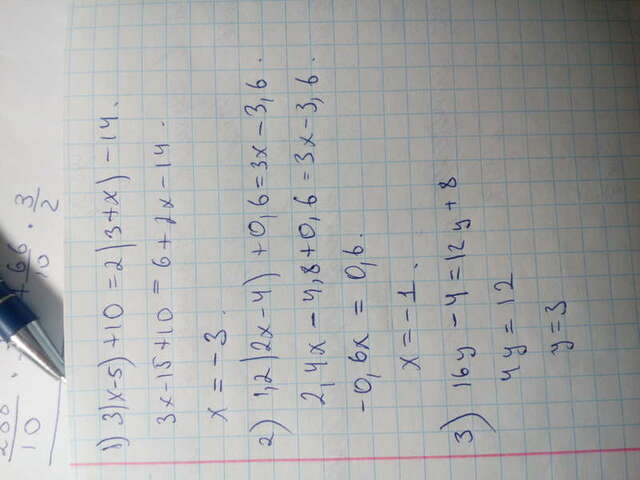 1) 3(x-5)+10=2(3+x)-14.
3x-15+10=6+2x-14.
x=-3.
2) 1,2(2x-4)+0,6=3x-3,6.
2,4x-4,8+0,6=3x-3,6.
-0,6x=0,6.
x=-1.
3) 16y-4=12y+8
4y=12
y=3